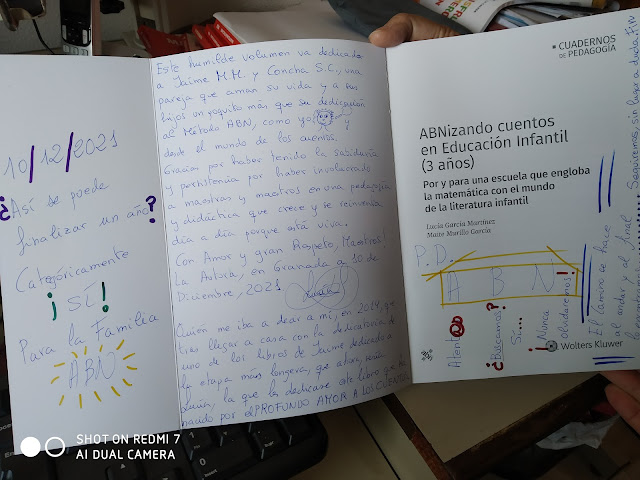 10/12/2021
¿Así se puede
finalizar un año?
Categóricamente
¡SÍ!
Para la Familia
ABN
Este humilde volumen va dedicado
a Jaime M.M. y Concha S.C., una
pareja que aman su vida y a sus
hijos un poquito más que su dedicación
al Método ABN, como yo
desde el mundo de los cuentos.
Gracias por haber tenido la sabiduría
y persistencia por haber involucrado
a maestras y maestros en una pedagogía
y didáctica que crece y se reinventa
día a día porque está viva.
Con Amor y gran Respeto, Maestros!
La Autora, en Granada a 10 de
Diciembre, 2021
Quién me iba a decir a mí, en 2014, que
tras llegar a casa con la dedicatoria de
uno de los libros de Jaime dedicado a
la etapa más longeva, que ahora, sería
Lucía, la que le dedicase este libro que ha
nacido por el PROFUNDO AMOR A LOS CUENTOS
CUADERNOS
DE PEDAGOGÍA
ABNizando cuentos
en Educación Infantil
(3 años)
Por y para una escuela que engloba
la matemática con el mundo
de la literatura infantil
Lucía García Martínez
Maite Murillo García
P.D.
A B N
Atent@s
¿Buscamos?
Sí....
¡Nunca
olvidaremos!
Wolters Kluwer
El camino se hace
al andar y al final
Seguiremos sin lugar a duda.
SHOT ON REDMI 7
AI DUAL CAMERA